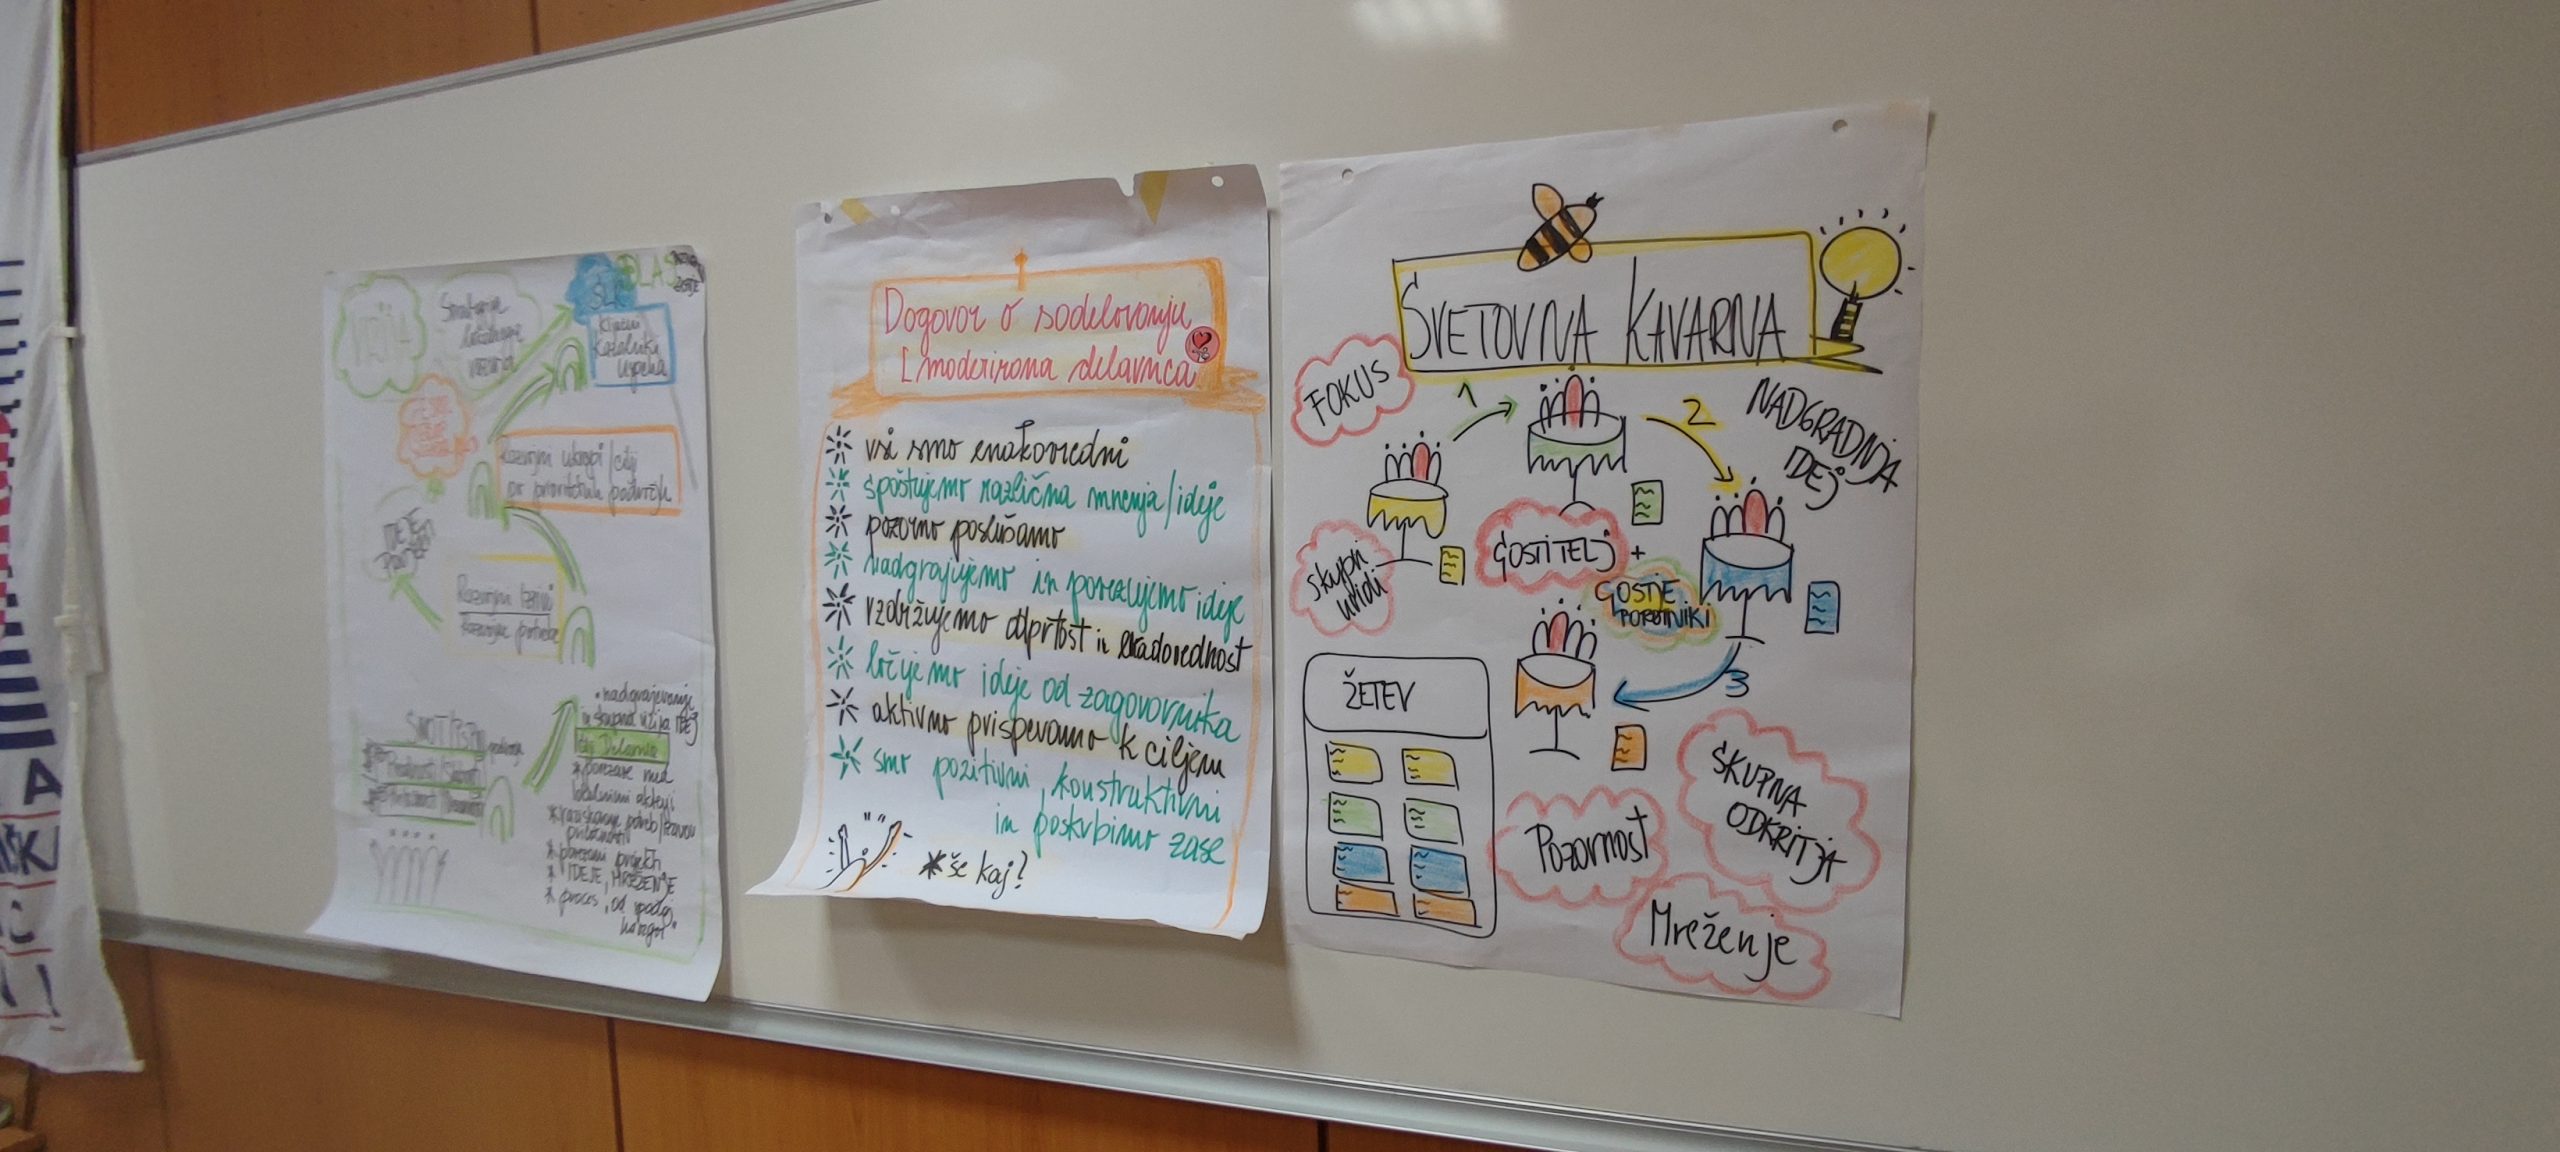 Strategija
lokalnega
razvoja
SLR
LAS
Ključni
Kazalniki
Uspeha
Razvojni ukrepi / cilji
po prioritetnih področjih
Razvojni izzivi
Razvojne potrebe
• nadgrajevanje
in skupna vizija IDEJ
Cilji Delavnice
* povezave med
lokalnimi akterji
* raziskanje potreb/izzivov
priložnosti
* povezani projekti
* IDEJE, MREŽENJE
* proces „od spodaj
navzgor"
Dogovor o sodelovanju
[moderirana delavnica
vsi smo enakovredni
spoštujemo različna mnenja/ideje
pozorno poslušamo
nadgrajujemo in povezujemo ideje
vzdržujemo odprtost in radovednost
ločujemo ideje od zagovornika
aktivno prispevamo k ciljem
smo pozitivni, konstruktivni
in poskrbimo zase
* še kaj?
SVETOVNA KAVARNA
FOKUS
1
2
NADGRADNJA
IDEJ
GOSTITELJ +
skupni
uvidi
GOSTJE
POPOTNIKI
3
ŽETEV
SKUPNA
ODKRITJA
Pozornost
Mreženje